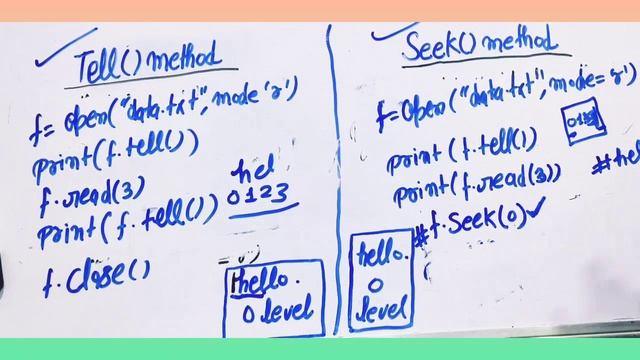 Tell() method
f=open("data.txt", mode 'r')
print(f.tell())
f.read(3)
print(f.tell())
f.close()
hel
0123
hello.
0 level
Seek() method
f=open("data.txt", mode='r')
print(f.tell()
print(f.read(3))
#hel
#f.Seek(0)
hello.
0
level